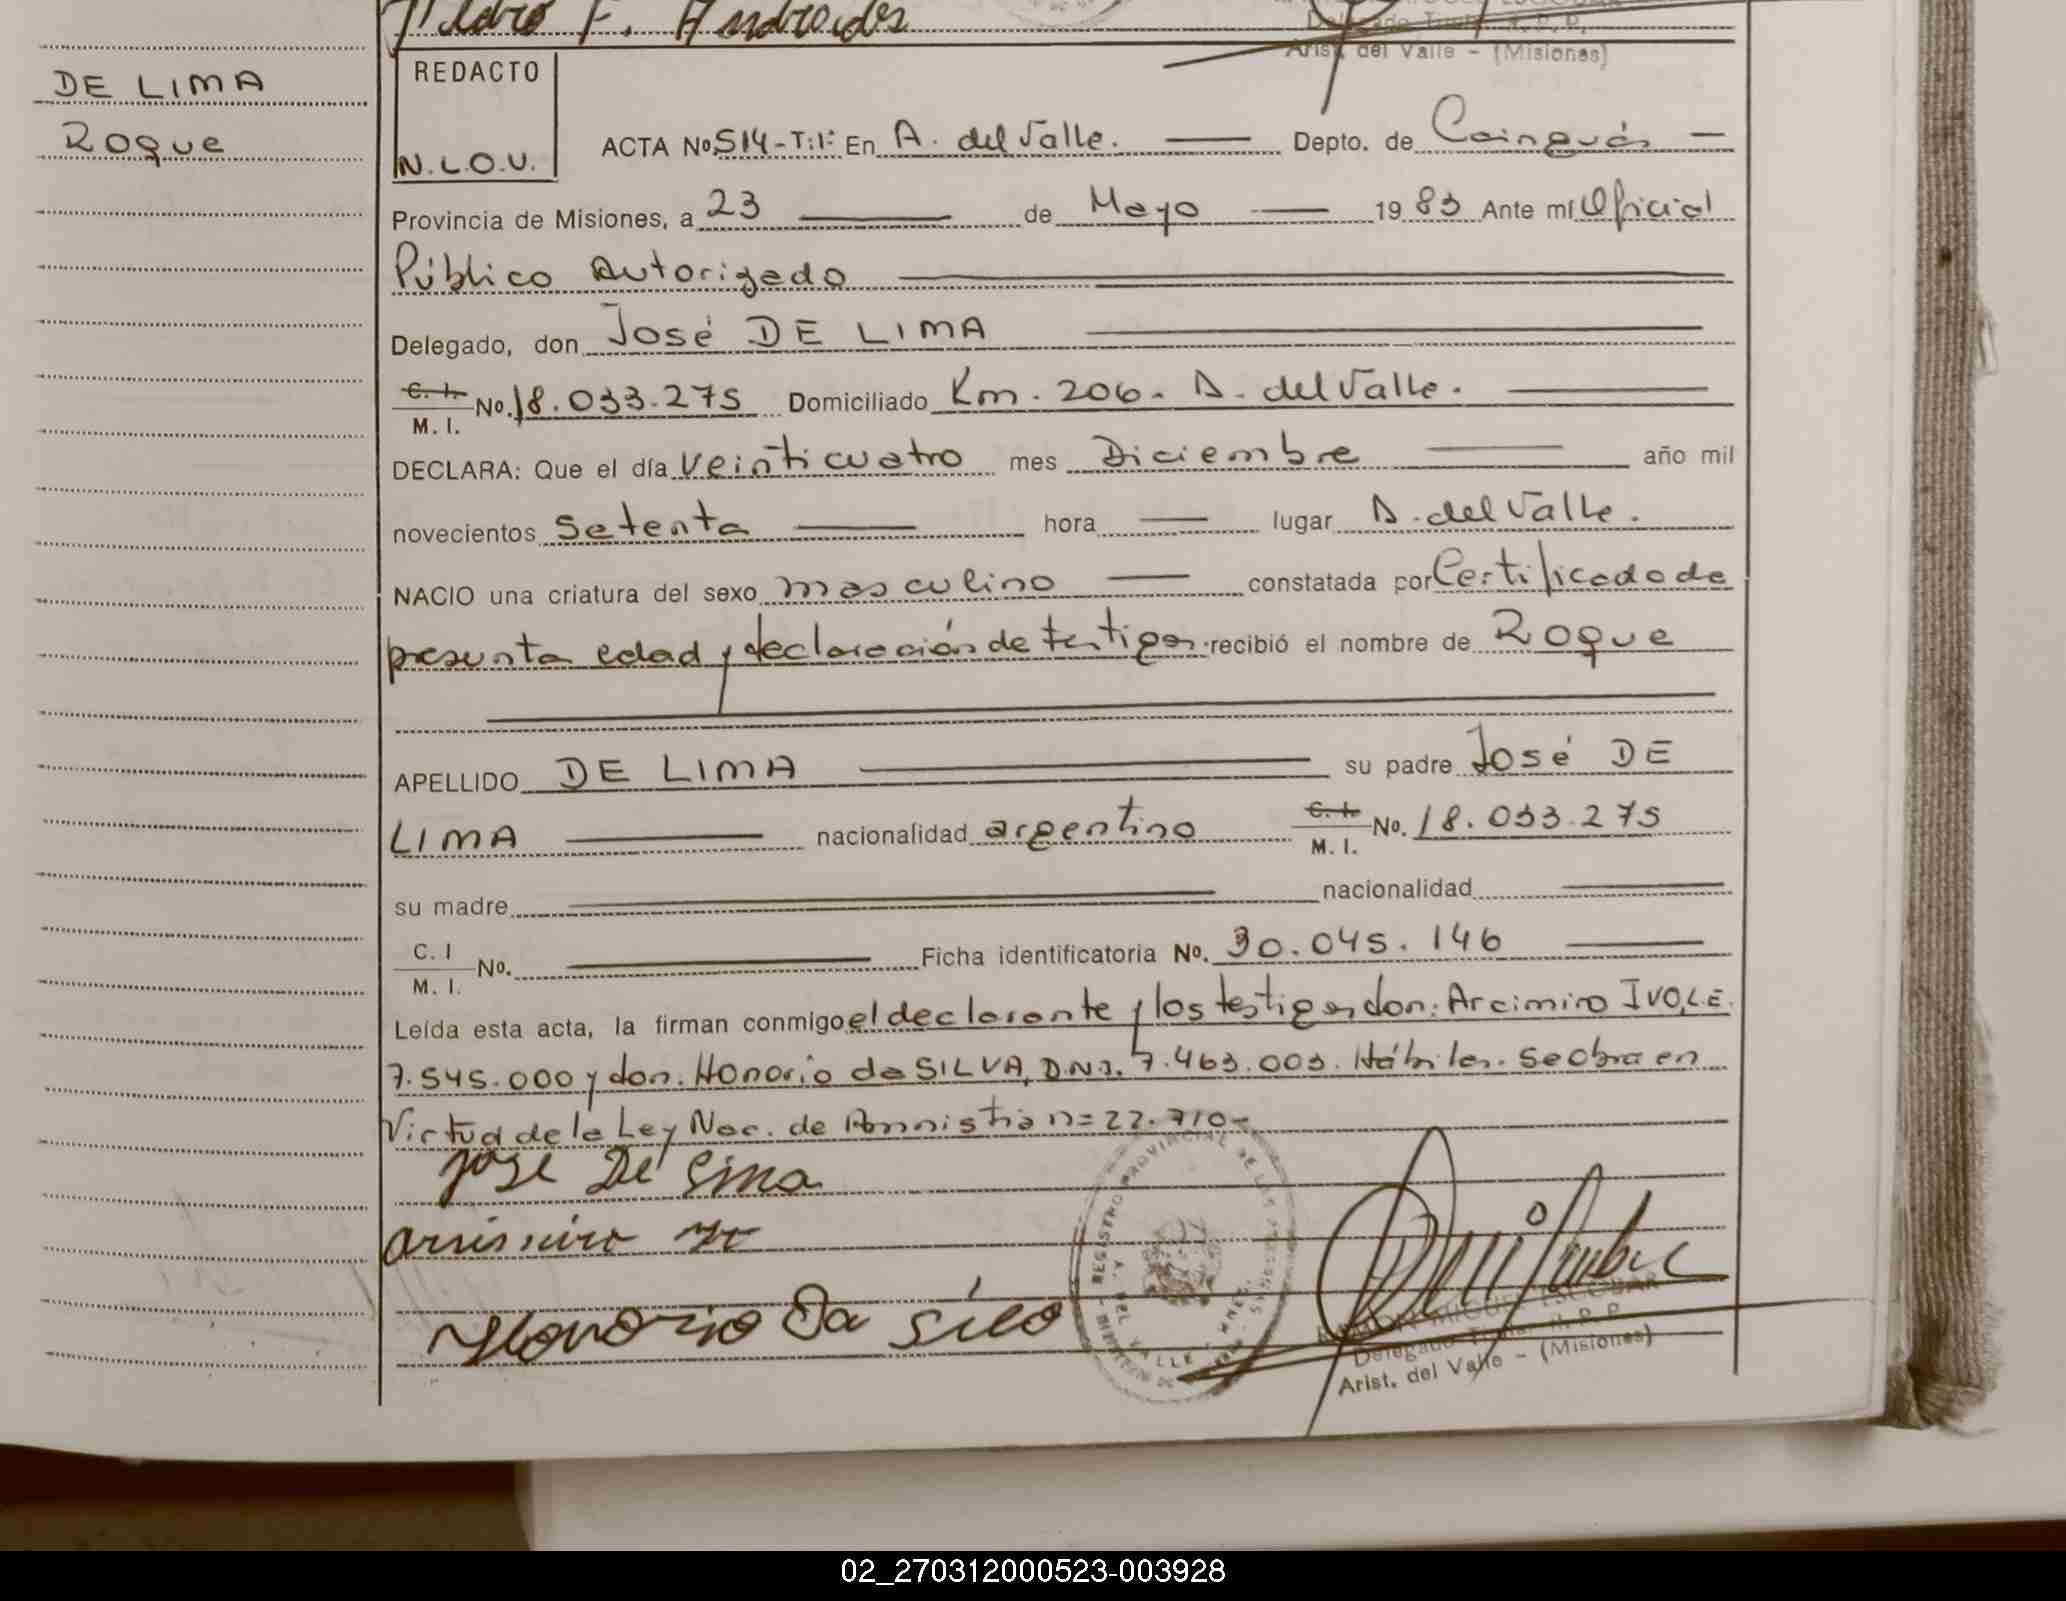 F. Andrade
Arist. del Valle - (Misiones)
DE LIMA
Roque
REDACTO
N.L.O.V.
ACTA No. 514-T:1º En A. del Valle. Depto. de Cainguás
Provincia de Misiones, a 23 de Mayo 1983 Ante mí Oficial
Público Autorizado
Delegado, don José DE LIMA
C. I. M. I. No. 18.033.275 Domiciliado Km. 206. A. del Valle.
DECLARA: Que el día veinticuatro mes Diciembre año mil
novecientos setenta hora lugar A. del Valle.
NACIO una criatura del sexo masculino constatada por Certificado de
presunta edad y declaración de testigos. recibió el nombre de Roque
APELLIDO DE LIMA su padre José DE
LIMA nacionalidad argentino C. I. M. I. No. 18.033.275
su madre nacionalidad
C. I M. I. No. Ficha identificatoria No. 30.045.146
Leída esta acta, la firman conmigo el declarante y los testigos, don: Arcimiro IVO, L.E.
7.545.000 y don: Honorio da SILVA, D.N.I. 7.463.003. Hábiles. Se obra en
Virtud de la Ley Nac. de Amnistía n= 22.710-
Jose De Lima
Honorio Da Silva
REGISTRO PROVINCIAL DE LAS PERSONAS
A. DEL VALLE
MIGUEL ESCOBAR
Delegado Titular R. P. P.
Arist. del Valle - (Misiones)
02_270312000523-003928